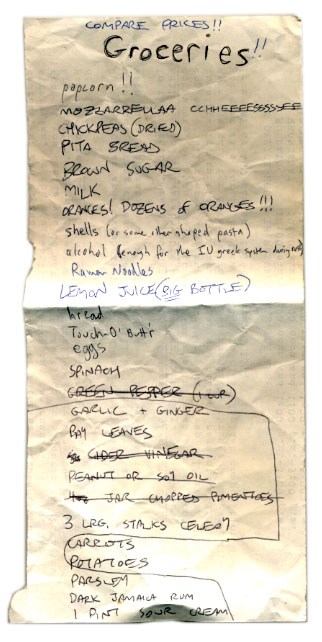 COMPARE PRICES!!
Groceries!!
popcorn!!
MOZZARRELLAA CCHHEEEESSSSEE
CHICKPEAS (DRIED)
PITA BREAD
BROWN SUGAR
MILK
ORANGES! DOZENS OF ORANGES!!!
shells (or some other shaped pasta)
alcohol (enough for the IU greek system during
Ramen Noodles
LEMON JUICE (BIG BOTTLE)
bread
Touch-O' Butt'r
eggs
SPINACH
GREEN PEPPER (1 CUP)
GARLIC + GINGER
BAY LEAVES
CIDER VINEGAR
PEANUT OR SOY OIL
JAR CHOPPED PIMENTOES
3 LRG. STALKS CELERY
CARROTS
POTATOES
PARSLEY
DARK JAMAICA RUM
1 PINT SOUR CREAM